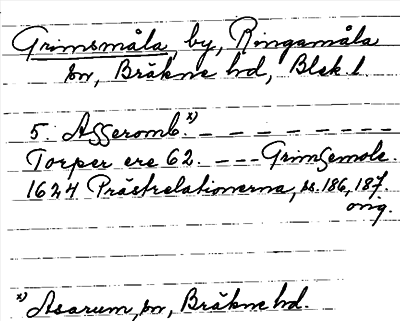 Grimsmåla, by, Ringamåla
sn, Bräkne hd, Blek. l.
5. Asseromb.x) – – – – – – – –
Torper ere 62. – – – Grimsemole.
1624 Prästrelationerna, s. 186, 187.
orig.
x) Asarum, sn, Bräkne hd.